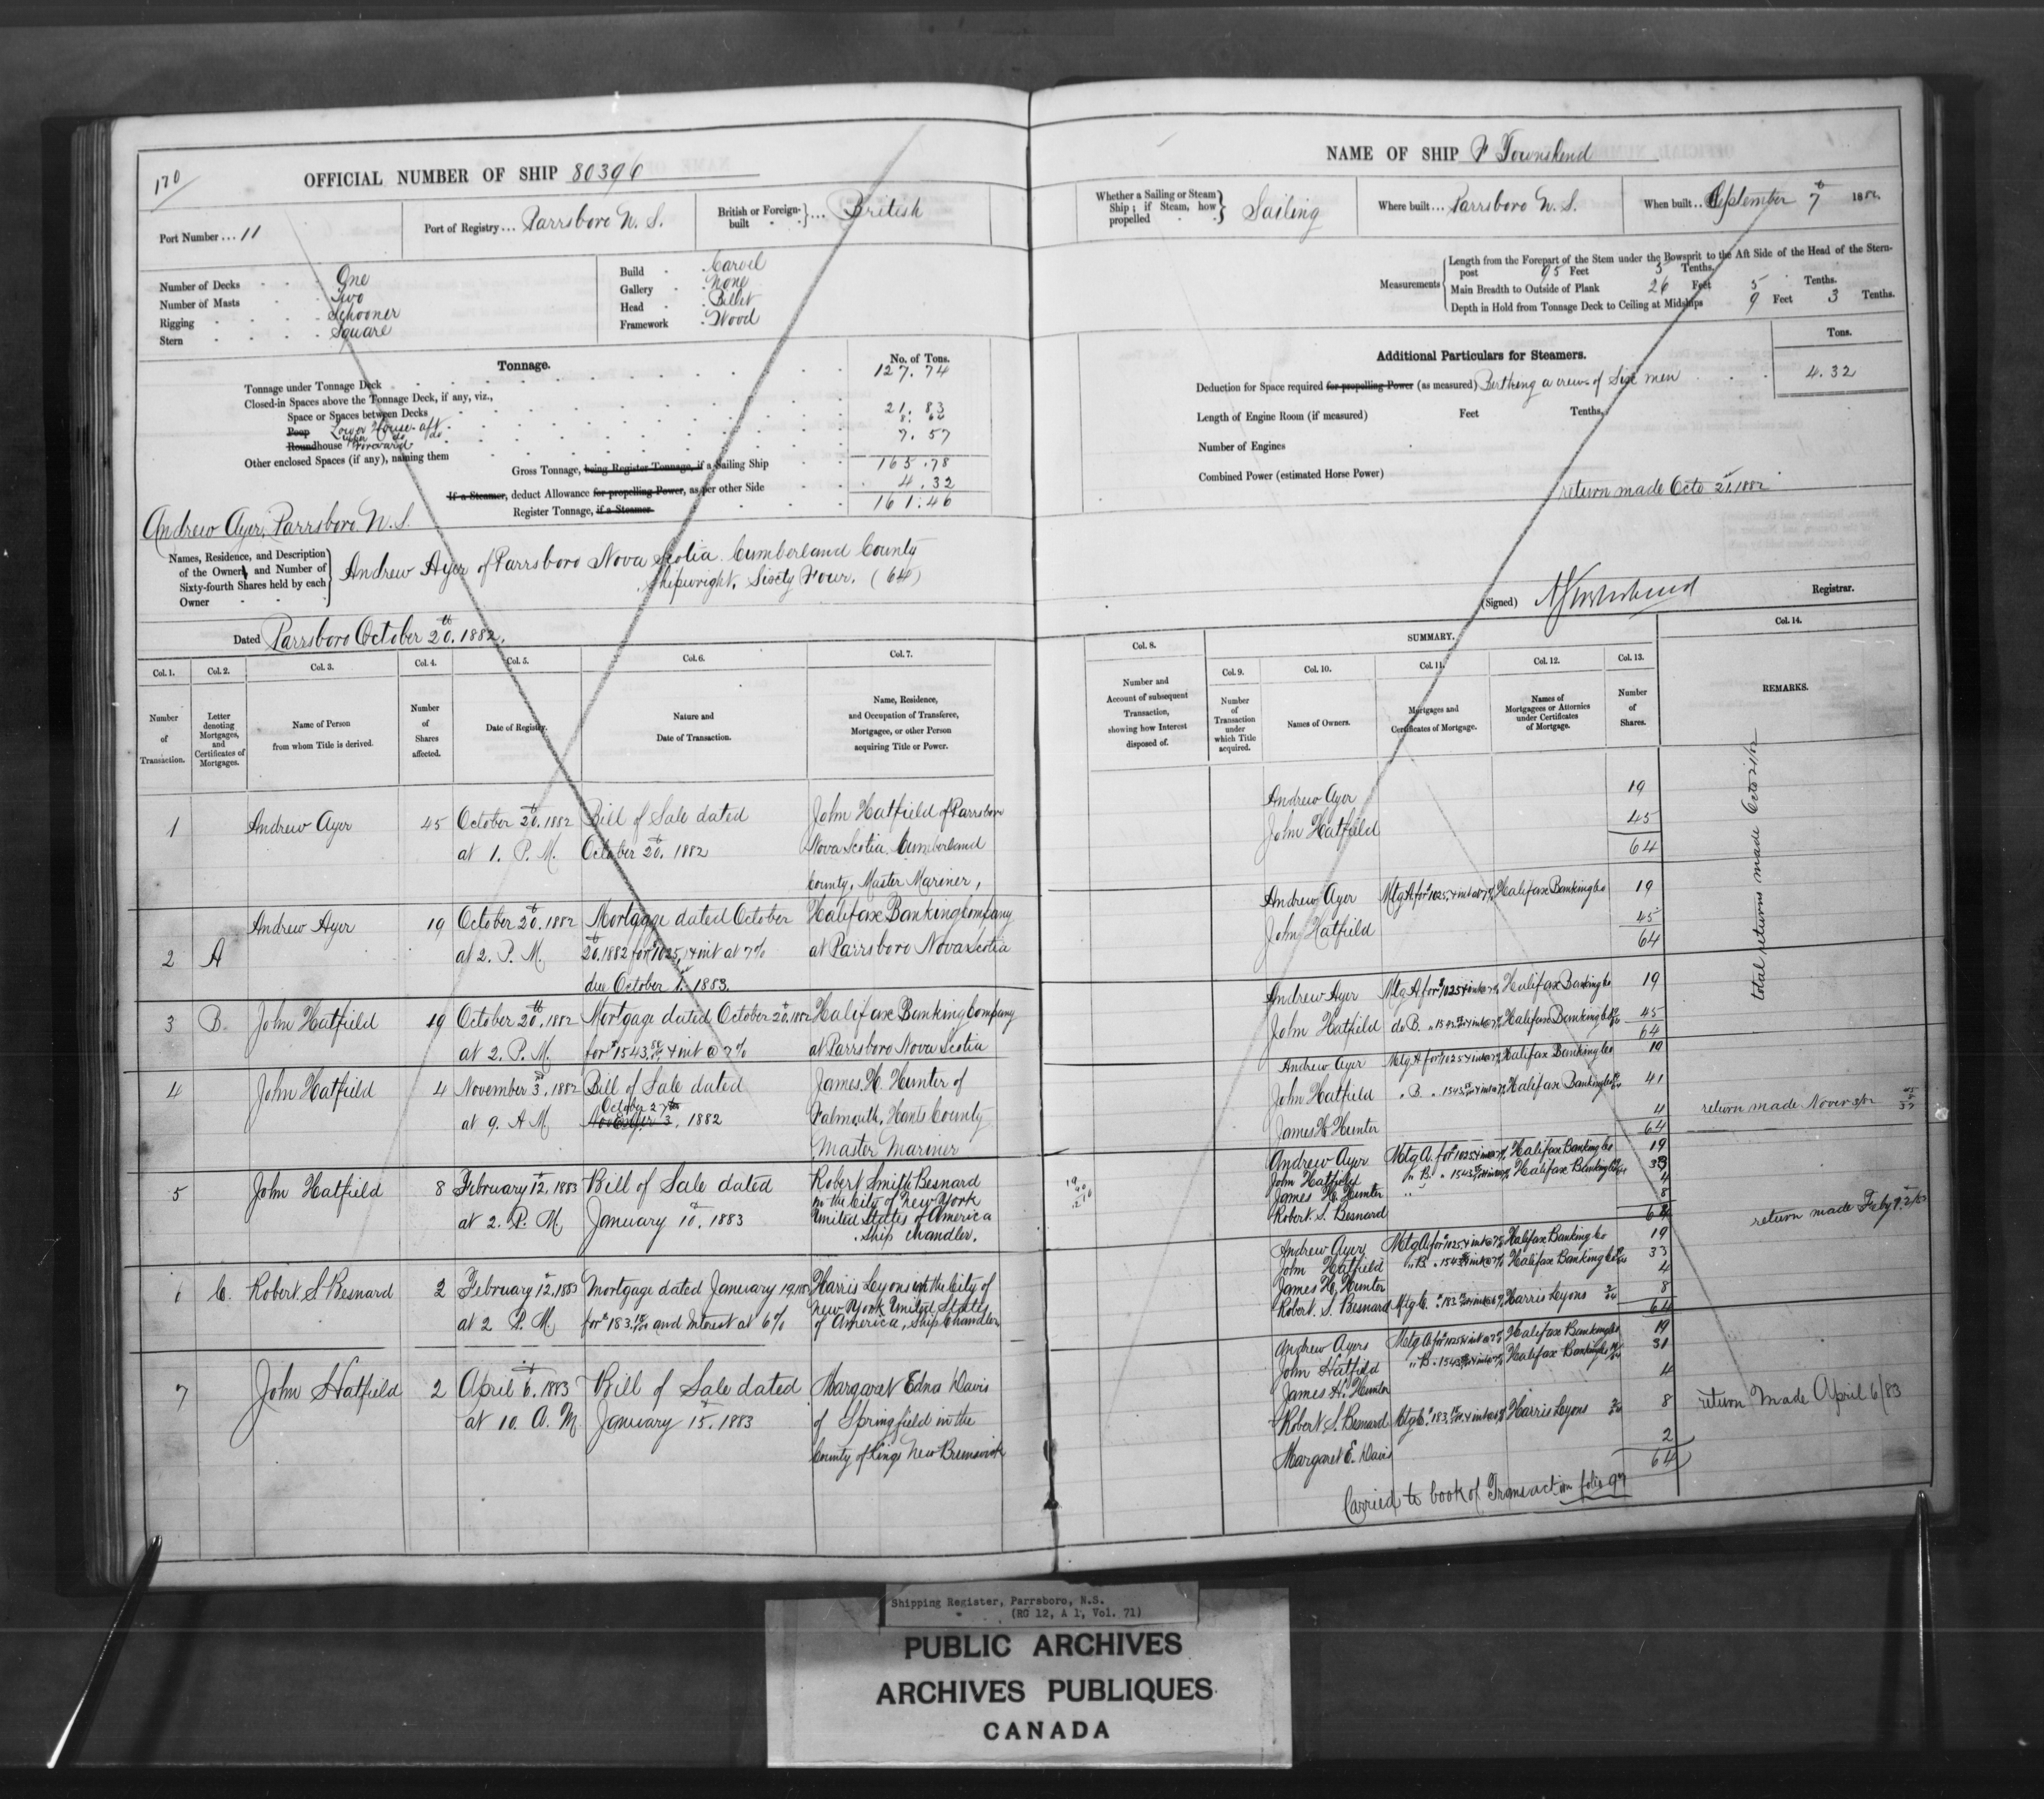 170
OFFICIAL NUMBER OF SHIP 80396
Port Number ... 11
Port of Registry ... Parrsboro N. S.
British or Foreign-built ... British
Number of Decks One
Number of Masts Two
Rigging Schooner
Stern Square
Build Carvel
Gallery None
Head Billet
Framework Wood
Tonnage.
No. of Tons.
Tonnage under Tonnage Deck 127.74
Closed-in Spaces above the Tonnage Deck, if any, viz.,
Space or Spaces between Decks
Poop Lower House aft 21.83
Roundhouse upper do do
Forward 7.57
Other enclosed Spaces (if any), naming them
Gross Tonnage, being Register Tonnage, if a Sailing Ship 165.78
If a Steamer, deduct Allowance for propelling Power, as per other Side 4.32
Register Tonnage, if a Steamer 161.46
Andrew Ayer, Parrsboro N. S.
Names, Residence, and Description of the Owners, and Number of Sixty-fourth Shares held by each Owner
Andrew Ayer of Parrsboro Nova Scotia Cumberland County
Shipwright, Sixty Four. (64)
Dated Parrsboro October 20th. 1882.
Col. 1. Col. 2. Col. 3. Col. 4. Col. 5. Col. 6. Col. 7.
Number of Transaction.
Letter denoting Mortgages, and Certificates of Mortgages.
Name of Person from whom Title is derived.
Number of Shares affected.
Date of Registry.
Nature and Date of Transaction.
Name, Residence, and Occupation of Transferee, Mortgagee, or other Person acquiring Title or Power.
1 Andrew Ayer 45 October 20th. 1882 Bill of Sale dated John Hatfield of Parrsboro
at 1. P. M. October 20th. 1882 Nova Scotia Cumberland
County, Master Mariner,
Andrew Ayer 19 October 20th. 1882 Mortgage dated October Halifax Banking Company
2 A at 2. P. M. 20th. 1882 for $1025, + int at 7% at Parrsboro Nova Scotia
due October 1st. 1883.
3 B. John Hatfield 19 October 20th. 1882 Mortgage dated October 20th. 1882 Halifax Banking Company
at 2. P. M. for $1543. + int @ 7% at Parrsboro Nova Scotia
4 John Hatfield 4 November 3rd. 1882 Bill of Sale dated James. H. Hunter of
at 9. A M October 27th November 3, 1882 Falmouth, Hants County
Master Mariner
5 John Hatfield 8 February 12th. 1883 Bill of Sale dated Robert Smith Besnard
in the City of New York
at 2. P. M. January 10th. 1883 United States of America
Ship Chandler.
C. Robert. S. Besnard 2 February 12th. 1883 Mortgage dated January 19. 1883 Harris Lyons in the City of
New York United States
at 2 P. M. for $183. and Interest at 6% of America, Ship Chandler
7 John Hatfield 2 April 6th. 1883 Bill of Sale dated Margaret Edna Davis
at 10. A. M January 15th. 1883 of Springfield in the
County of Kings New Brunswick
NAME OF SHIP F Townshend
Whether a Sailing or Steam Ship; if Steam, how propelled Sailing
Where built ... Parrsboro N. S.
When built .. September 7th 1882.
Measurements
Length from the Forepart of the Stem under the Bowsprit to the Aft Side of the Head of the Stern-
post 95 Feet 5 Tenths.
Main Breadth to Outside of Plank 26 Feet 5 Tenths.
Depth in Hold from Tonnage Deck to Ceiling at Midships 9 Feet 3 Tenths.
Additional Particulars for Steamers.
Tons.
Deduction for Space required for propelling Power (as measured) Berthing a crew of Six men 4.32
Length of Engine Room (if measured) Feet Tenths,
Number of Engines
Combined Power (estimated Horse Power)
return made Octo 21st. 1882
(Signed) Registrar.
Col. 8. SUMMARY. Col. 14.
Col. 9. Col. 10. Col. 11. Col. 12. Col. 13.
Number and Account of subsequent Transaction, showing how Interest disposed of.
Number of Transaction under which Title acquired.
Names of Owners.
Mortgages and Certificates of Mortgage.
Names of Mortgagees or Attornies under Certificates of Mortgage.
Number of Shares.
REMARKS.
Andrew Ayer 19
John Hatfield 45
64
total returns made Octo 21/82
Andrew Ayer Mtg A for $1025. + int at 7% Halifax Banking Co 19
John Hatfield 45
64
Andrew Ayer Mtg A for $1025 + int @ 7% Halifax Banking Co 19
John Hatfield do B. " 1543 + int @ 7% Halifax Banking Co 45
64
Andrew Ayer Mtg A for $1025 + int @ 7% Halifax Banking Co 19
John Hatfield " B. " 1543 + int @ 7% Halifax Banking Co 41
James H Hunter 4 return made Nover 3/82
64
Andrew Ayer Mtg A. for $1025 + int @ 7% Halifax Banking Co 19
John Hatfield " B. " 1543 + int @ 7% Halifax Banking Co 33
James H. Hunter 4
Robert. S. Besnard 8
64
return made Feby
Andrew Ayer Mtg A for $1025 + int @ 7% Halifax Banking Co 19
John Hatfield " B. " 1543 + int @ 7% Halifax Banking Co 33
James H. Hunter 4
Robert. S. Besnard Mtg C. " 183 + int @ 6% Harris Lyons 8
64
Andrew Ayers Mtg A for $1025 + int @ 7% Halifax Banking Co 19
John Hatfield " B. " 1543 + int @ 7% Halifax Banking Co 31
James H. Hunter 4
Robert S. Besnard Mtg C. $183. + int @ 6% Harris Lyons 8
return Made April 6/83
Margaret E. Davis 2
64
Carried to book of Transaction folio 97
Shipping Register, Parrsboro, N.S.
(RG 12, A 1, Vol. 71)
PUBLIC ARCHIVES
ARCHIVES PUBLIQUES
CANADA